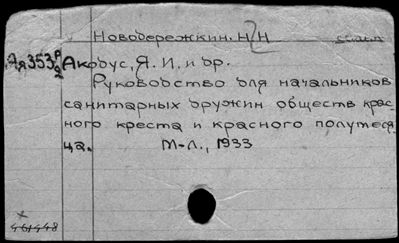 Новобережкин. Н Н
Ая353 Акобус, Я. И. и др.
Руководство для начальников
санитарных дружин обществ крас
ного креста и красного полумеся
ца. М-Л., 1933
461448